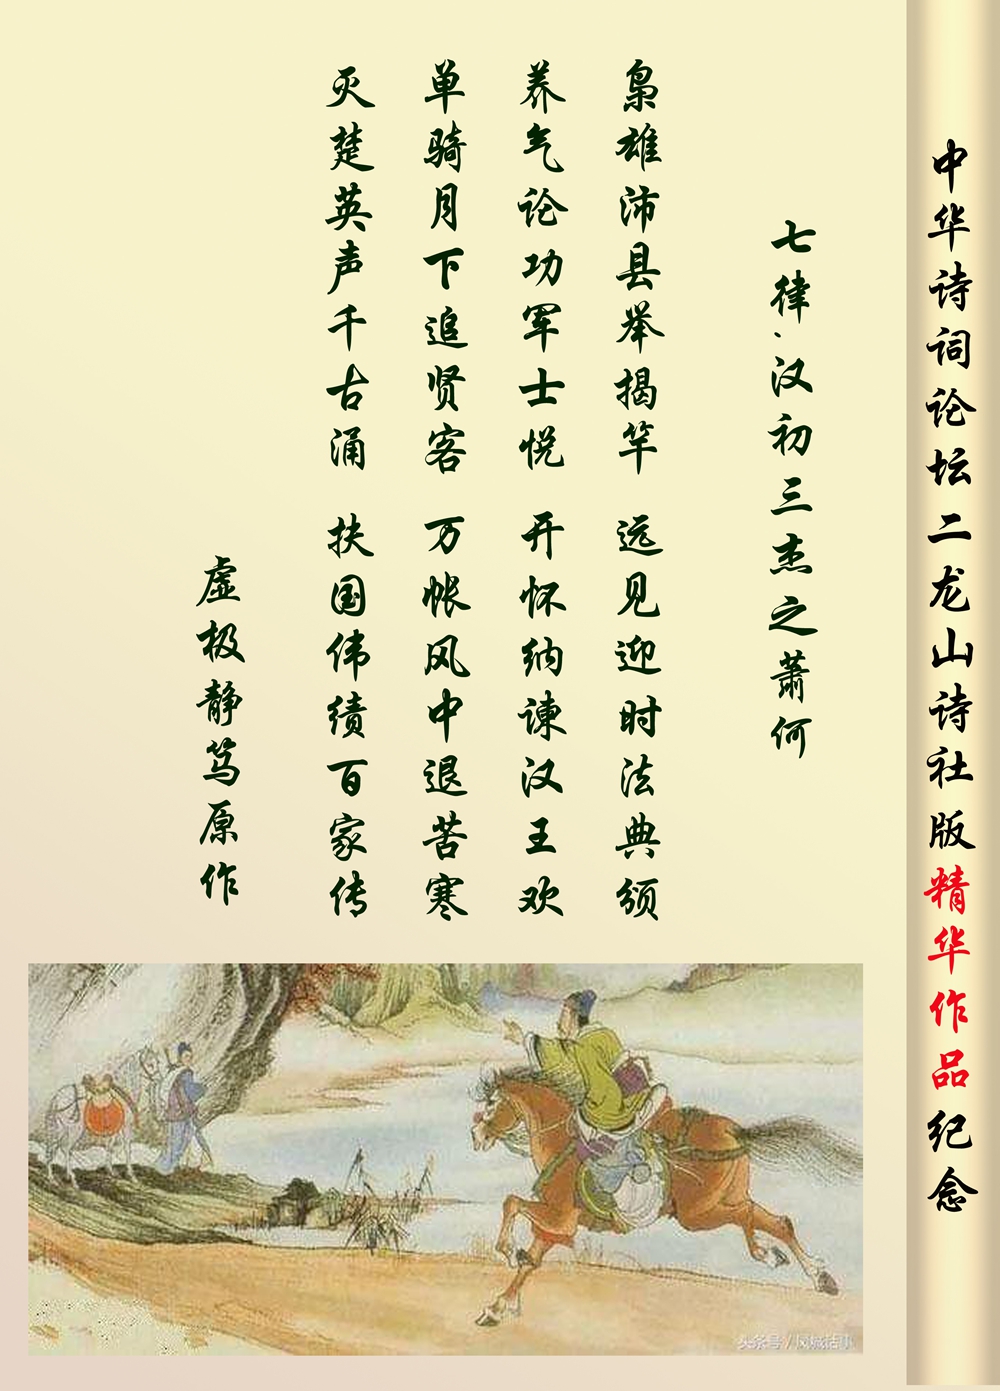 中华诗词论坛二龙山诗社版精华作品纪念
七律、汉初三杰之萧何
枭雄沛县举揭竿 远见迎时法典颁
养气论功军士悦 开怀纳谏汉王欢
单骑月下追贤客 万帐风中退苦寒
灭楚英声千古涌 扶国伟绩百家传
虚极静笃原作